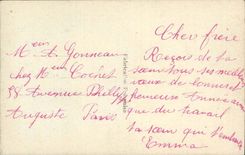 Cher frère
Reçois de ta
sœur tous ses meilleurs
vœux de bonne et
heureuse année ainsi
que du travail
ta sœur qui t'embrasse
Emma
Mr A. Gonneau
chez Mr
58 Avenue Philippe
Auguste Paris